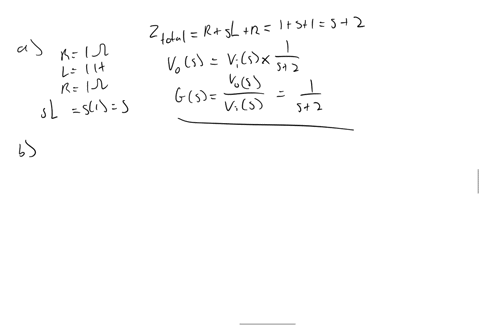 a) R = 1 Ω
L = 1 H
R = 1 Ω
sL = s(1) = s
Z total = R + sL + R = 1 + s + 1 = s + 2
V₀(s) = Vᵢ(s) × 1/(s+2)
G(s) = V₀(s)/Vᵢ(s) = 1/(s+2)
b)